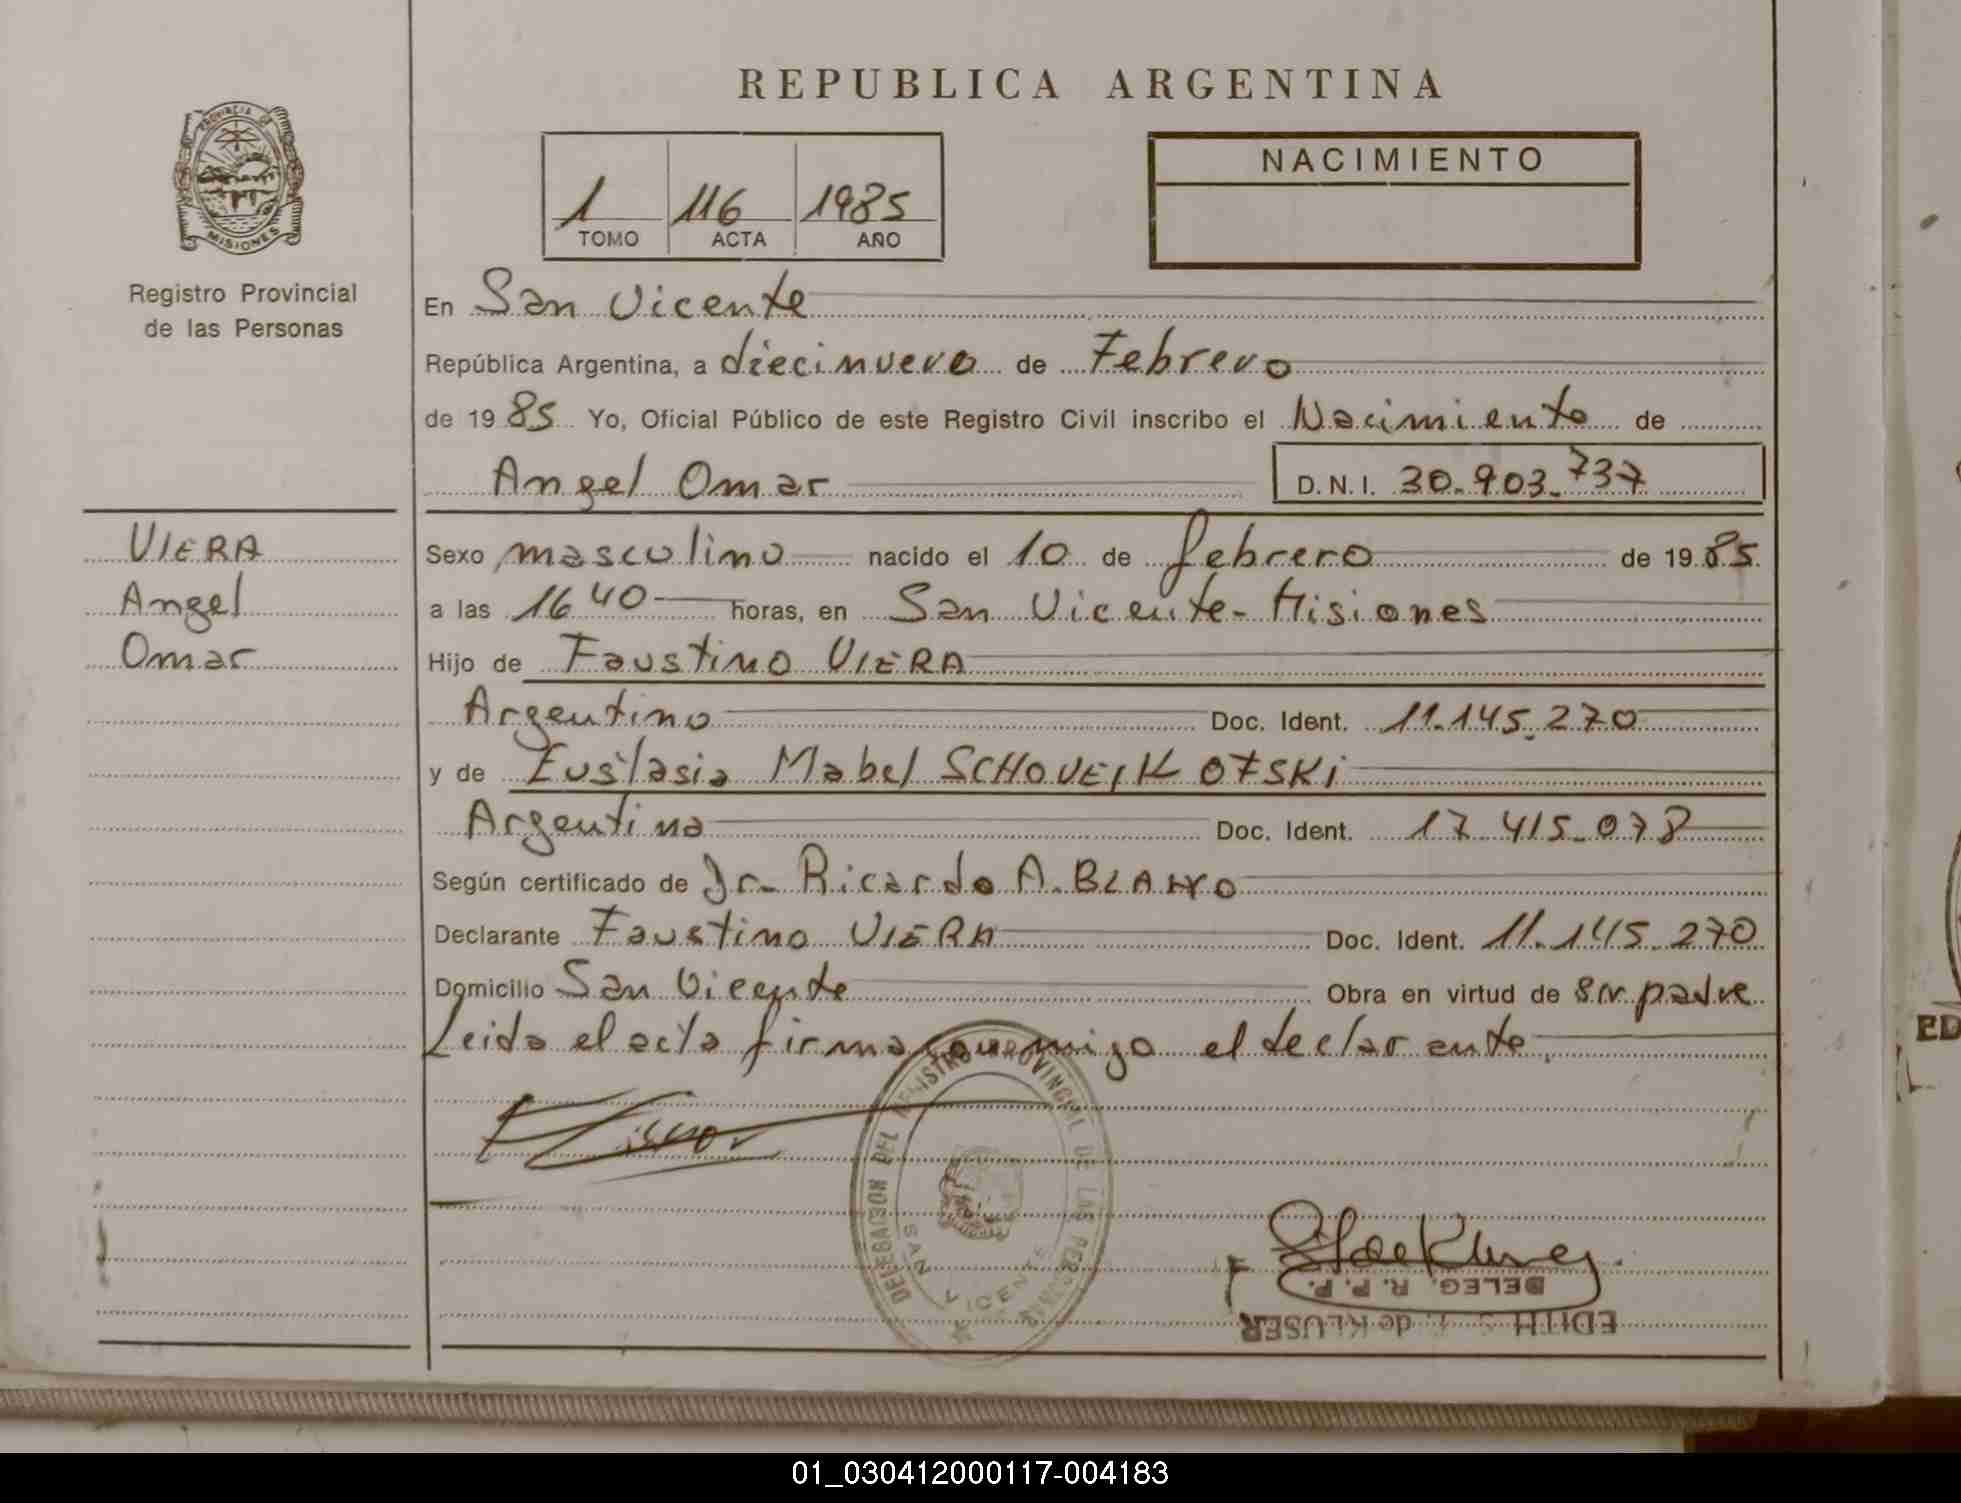 REPUBLICA ARGENTINA
PROVINCIA DE
MISIONES
Registro Provincial
de las Personas
1 116 1985
TOMO ACTA AÑO
NACIMIENTO
En San Vicente
República Argentina, a diecinueve de Febrero
de 1985 Yo, Oficial Público de este Registro Civil inscribo el Nacimiento de
Angel Omar D.N.I. 30.903.737
VIERA
Angel
Omar
Sexo masculino nacido el 10 de febrero de 1985
a las 16 40 horas, en San Vicente - Misiones
Hijo de Faustino VIERA
Argentino Doc. Ident. 11.145.270
y de Mabel
Argentina Doc. Ident. 17 415.078
Según certificado de Dr. Ricardo A. BLANCO
Declarante Faustino VIERA Doc. Ident. 11.145.270
Domicilio San Vicente Obra en virtud de ser padre
Leida el acta firma conmigo el declarante.
DELEGACION DEL REGISTRO PROVINCIAL DE LAS PERSONAS
SAN VICENTE
DELEG. R. P. P.
EDITH de KLUSER
ED
01_030412000117-004183